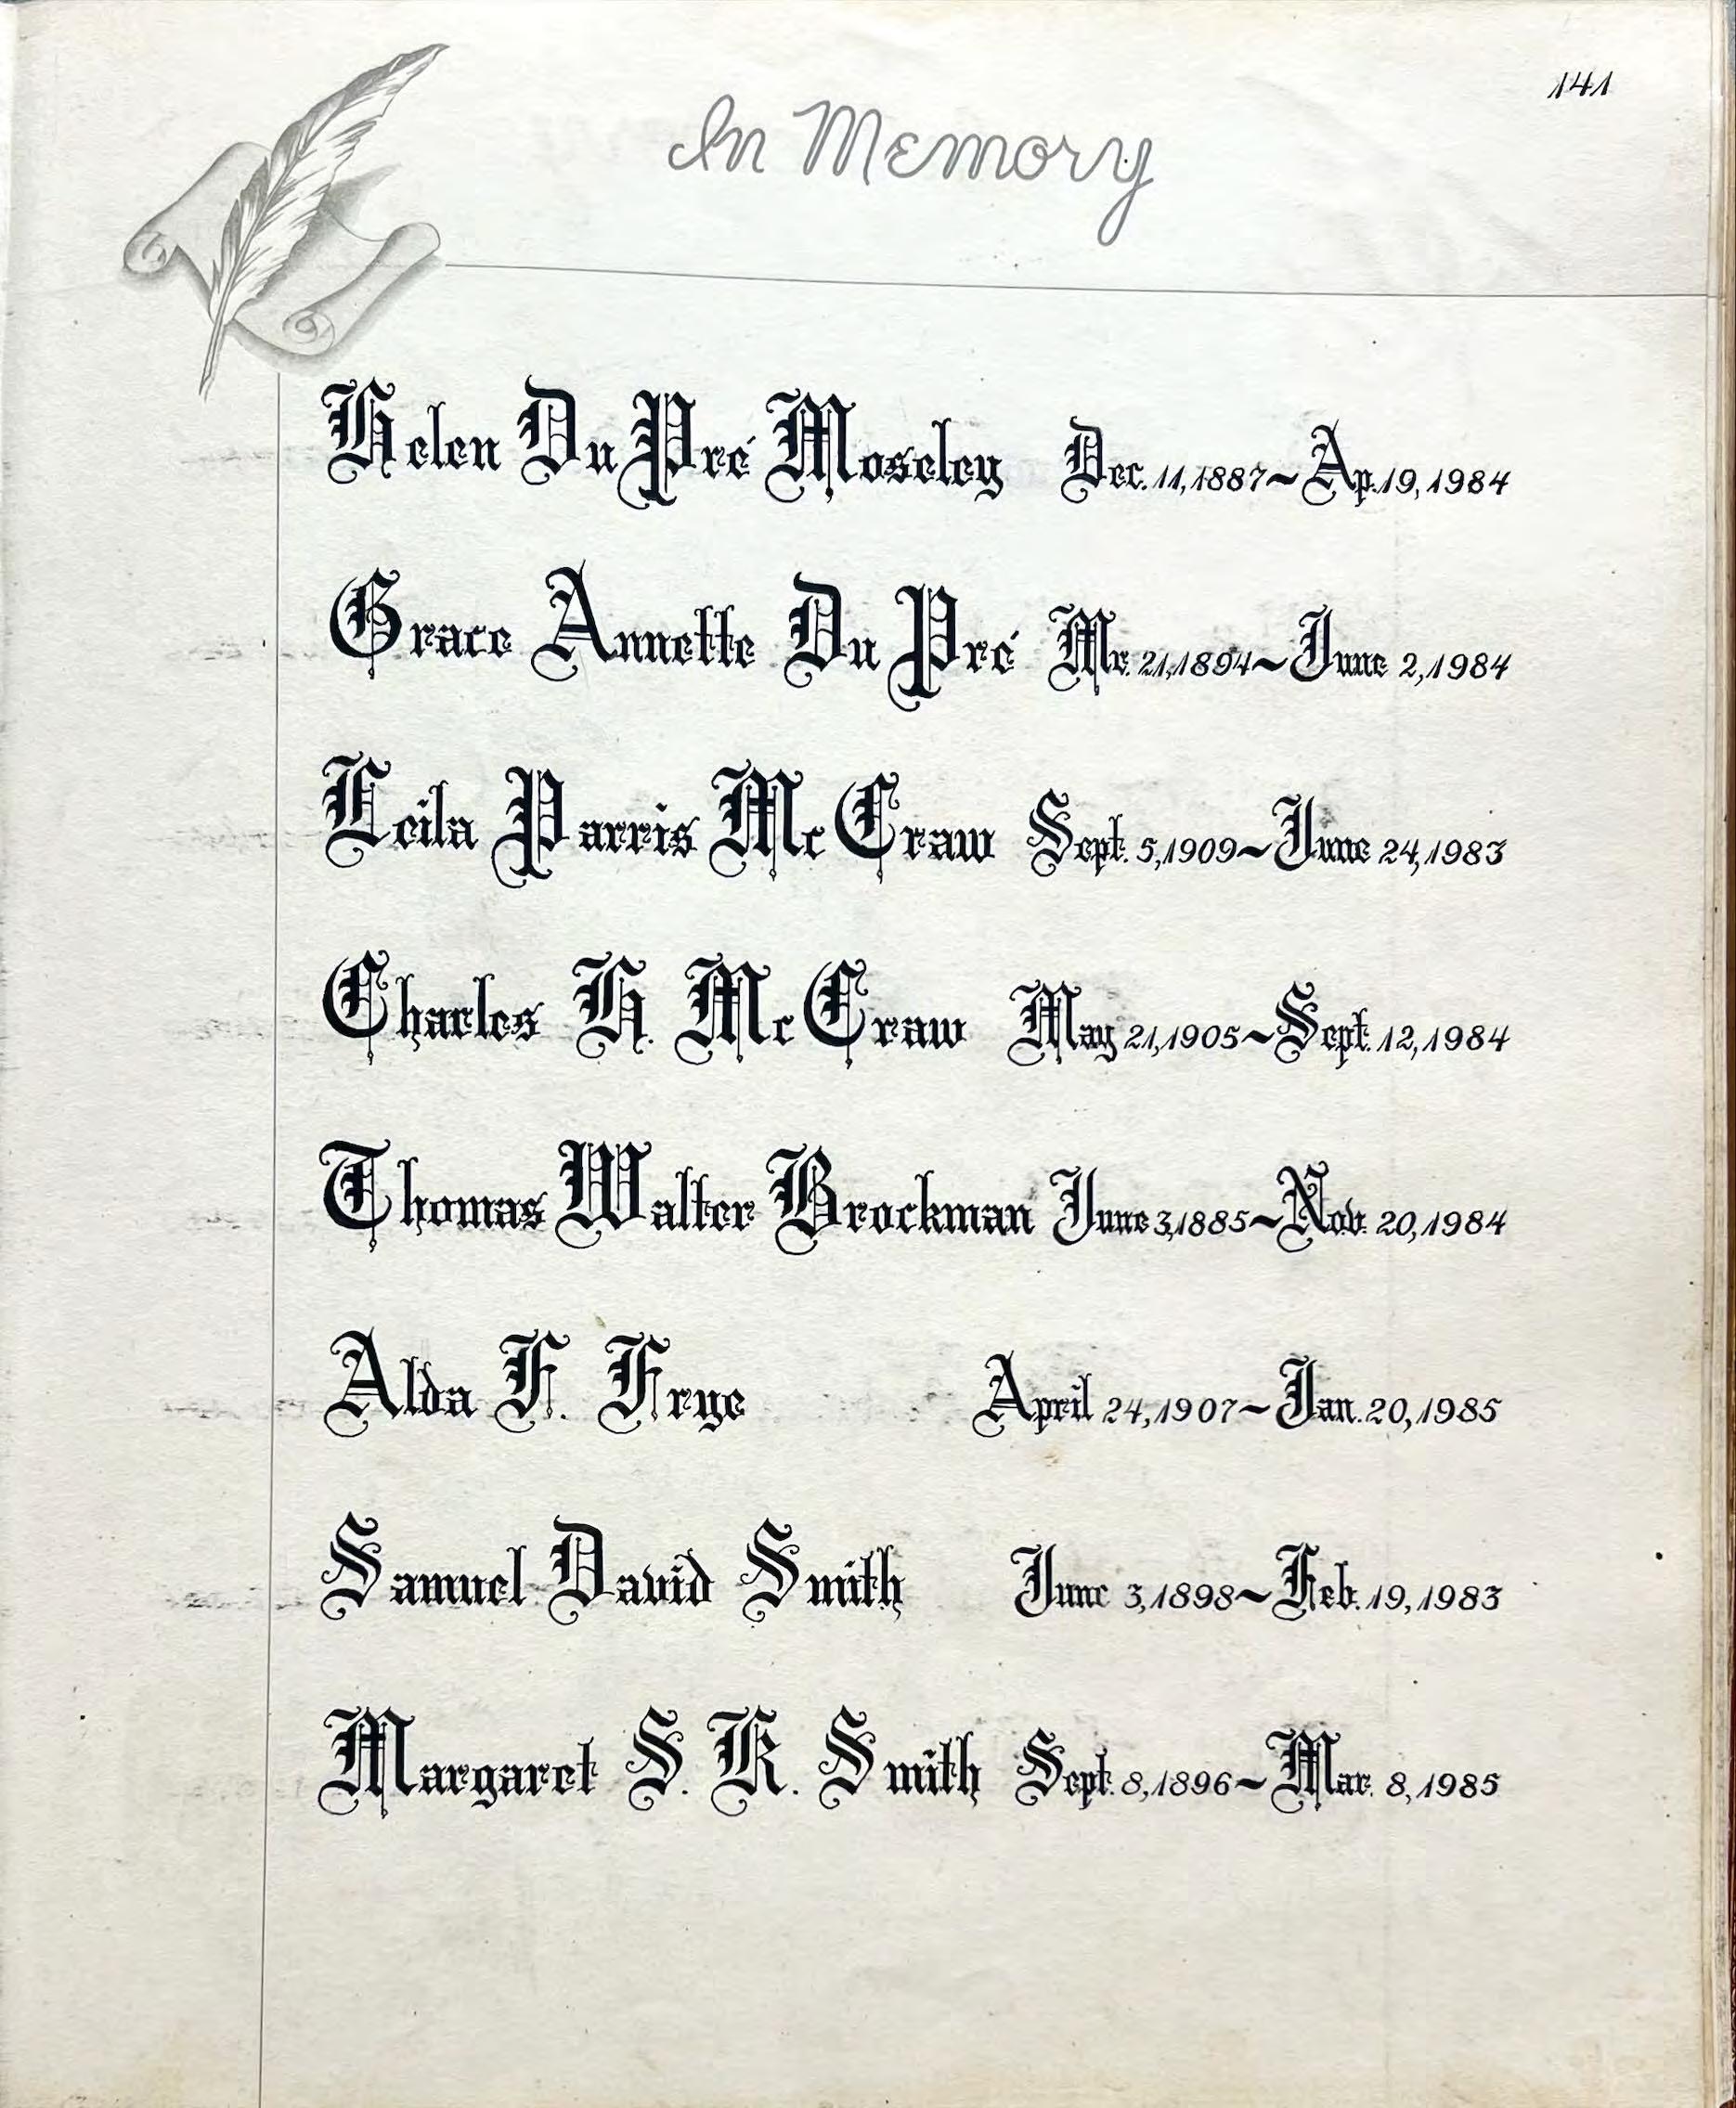 141
In Memory
Helen DuPré Moseley Dec. 11, 1887~Ap. 19, 1984
Grace Annette DuPré Mr. 21, 1894~June 2, 1984
Leila Parris McCraw Sept. 5, 1909~June 24, 1983
Charles H. McCraw May 21, 1905~Sept. 12, 1984
Thomas Walter Brockman June 3, 1885~Nov. 20, 1984
Alda F. Frye April 24, 1907~Jan. 20, 1985
Samuel David Smith June 3, 1898~Feb. 19, 1983
Margaret S. K. Smith Sept. 8, 1896~Mar. 8, 1985